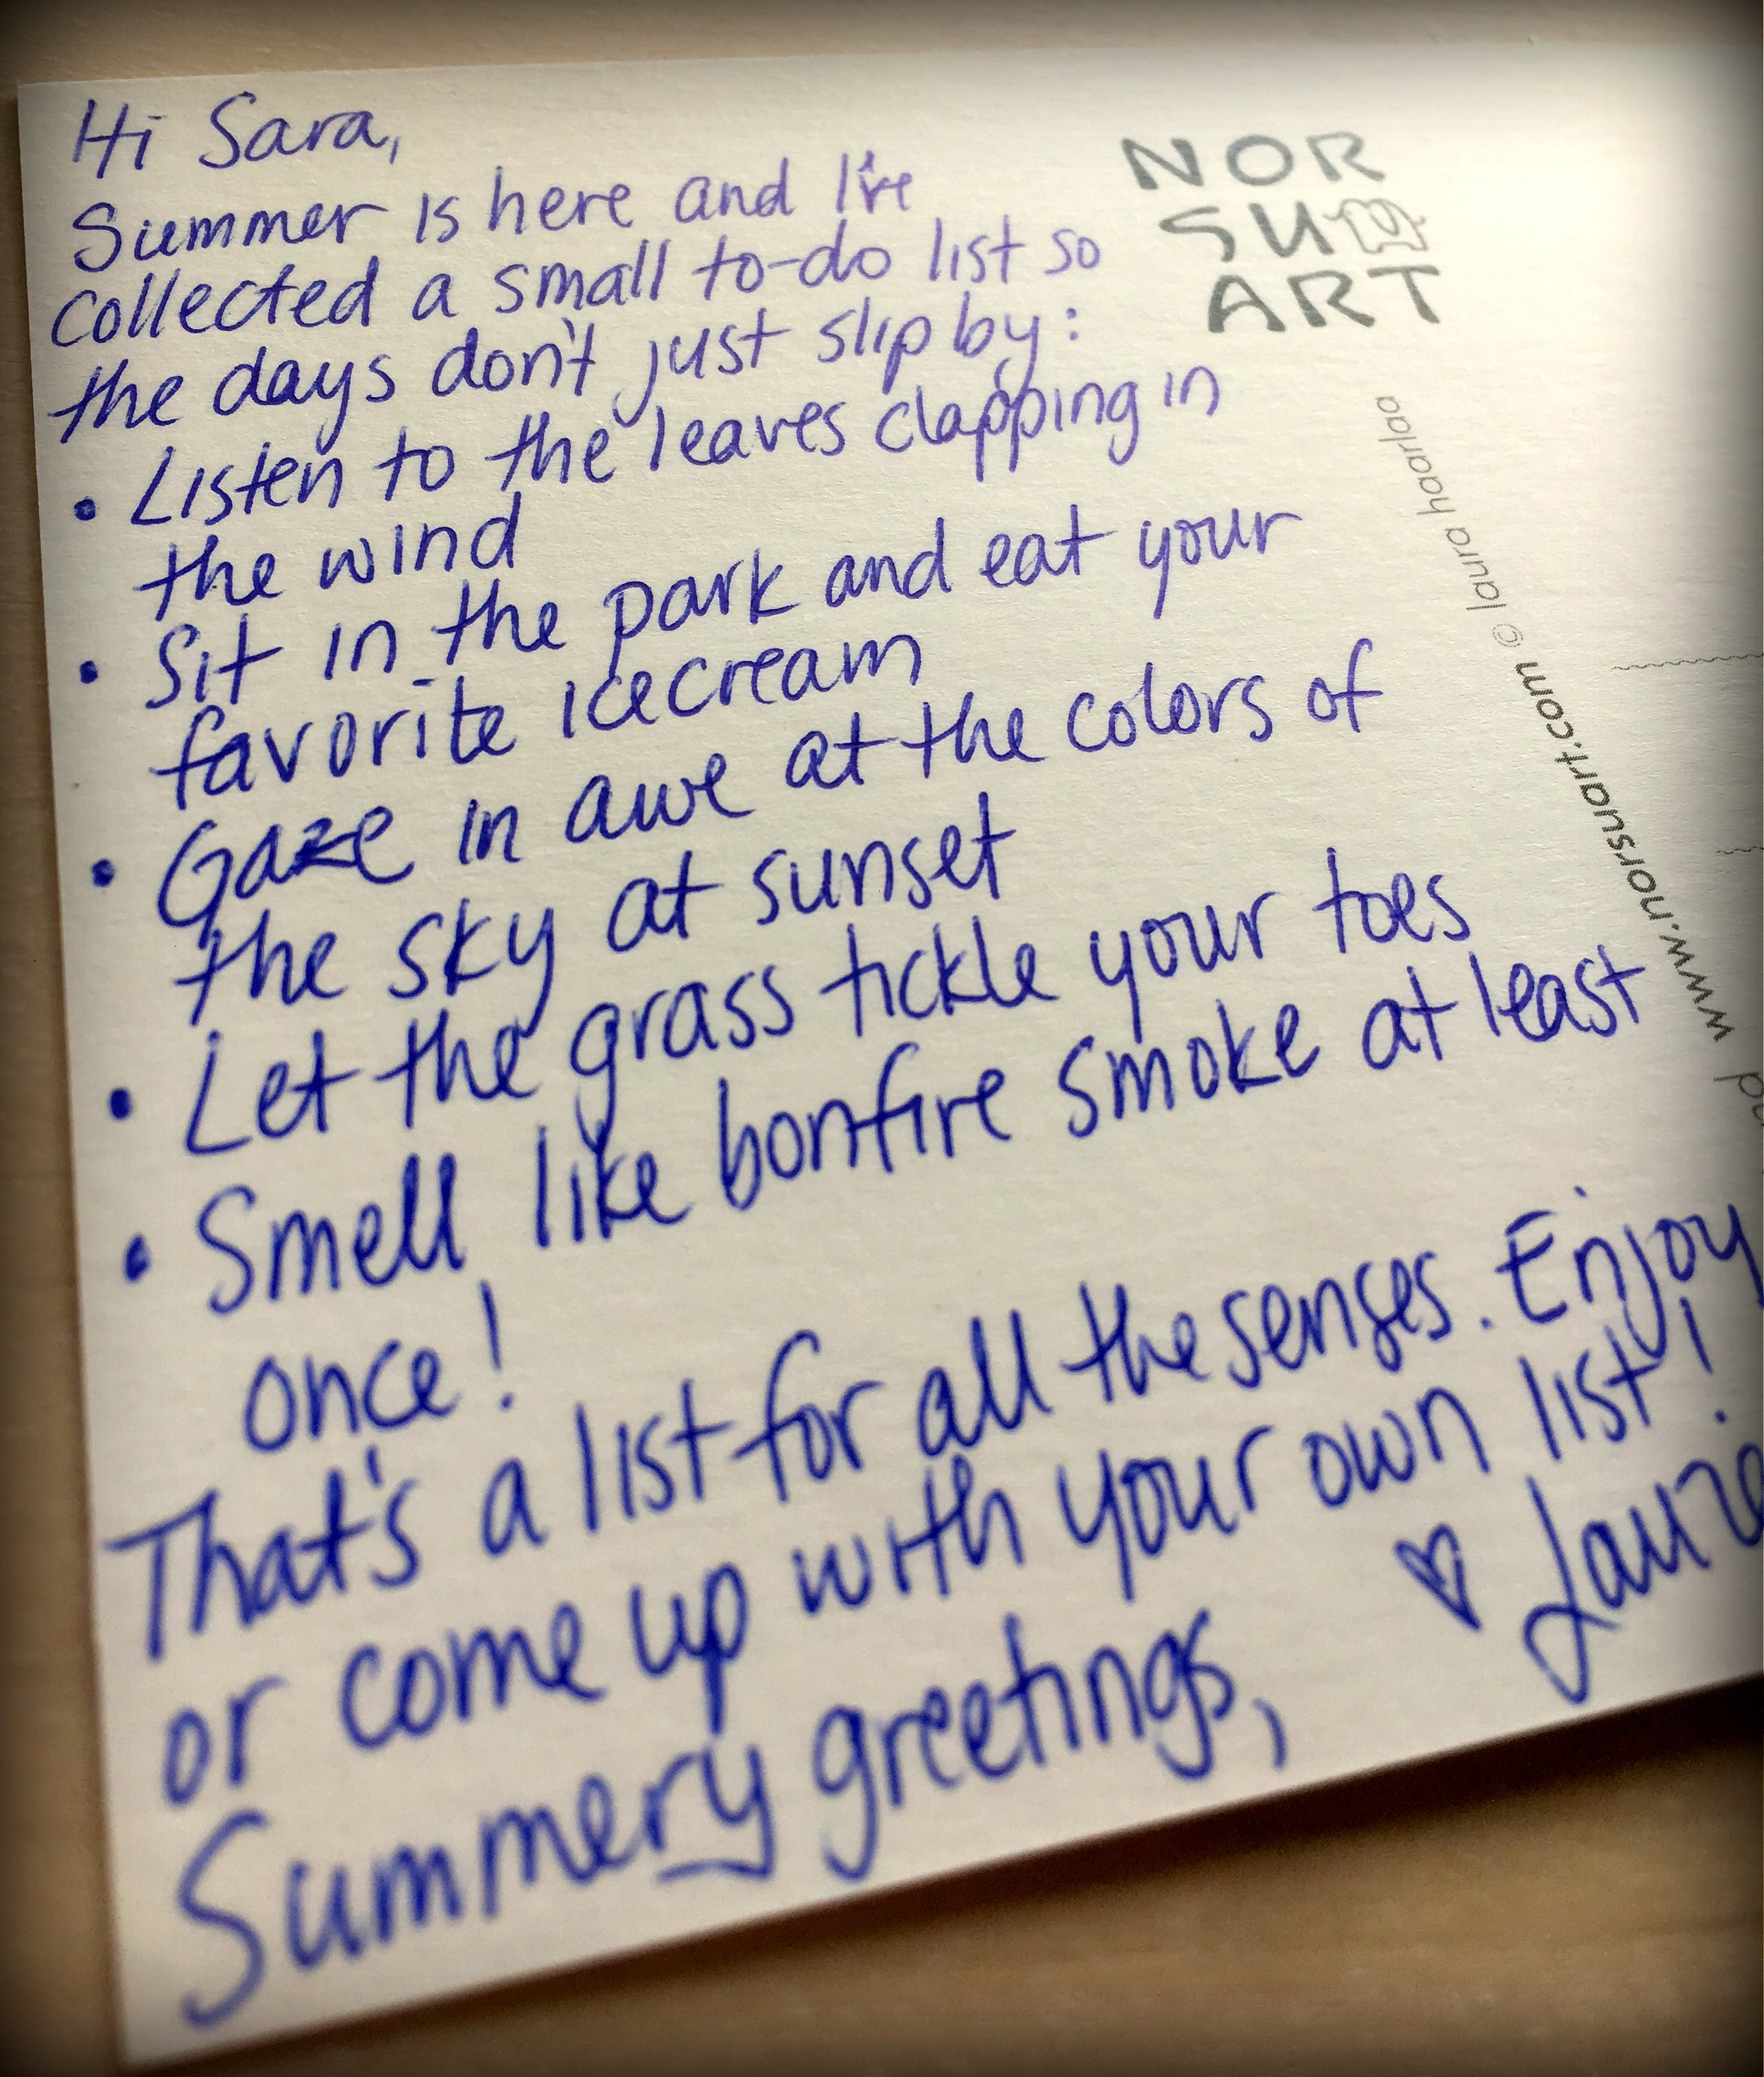 Hi Sara,
Summer is here and I've
collected a small to-do list so
the days don't just slip by:
• Listen to the leaves clapping in
the wind
• Sit in the park and eat your
favorite icecream
• Gaze in awe at the colors of
the sky at sunset
• Let the grass tickle your toes
• Smell like bonfire smoke at least
once!
That's a list for all the senses. Enjoy
or come up with your own list!
Summery greetings,
♥ Laurie
NOR
SU
ART
www.norsuart.com © laura haarlaa